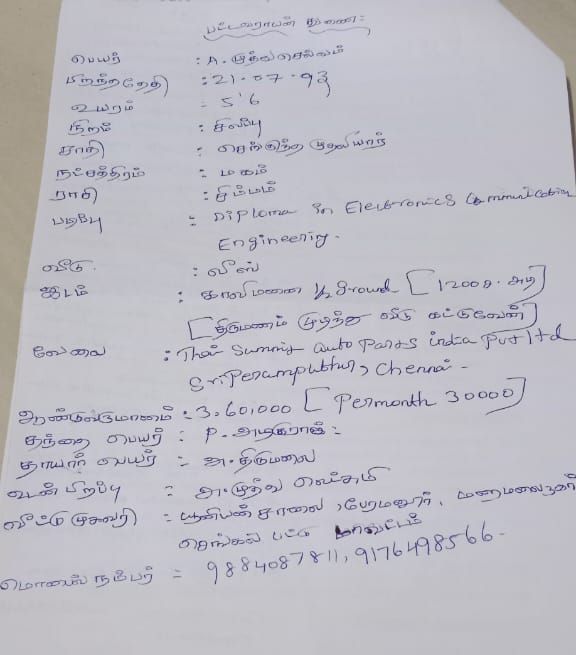 பட்டவராயன் துணை:
பெயர் : A. முத்துசெல்வம்
பிறந்ததேதி : 21-07-93
உயரம் : 5'6
நிறம் : சிவப்பு
சாதி : செங்குந்த முதலியார்
நட்சத்திரம் : மகம்
ராசி : சிம்மம்
படிப்பு : Diploma in Electronics Communication
Engineering.
வீடு : லீஸ்
இடம் : காலிமனை 1/2 Ground [1200ச.அடி]
[திருமணம் முடிந்த வீடு கட்டுவேன்]
வேலை : Thai Summit auto Parts india Pvt ltd
Sriperamputhur, Chennai.
ஆண்டுவருமானம் : 3,60,000 [Permonth 30000]
தந்தை பெயர் : P. அழகுராஜ்:
தாயார் பெயர் : அ. திருமலை
உடன் பிறப்பு : அ. முத்து லெட்சுமி
வீட்டு முகவரி : யூனியன் சாலை, பேரமனூர், மறைமலைநகர்
செங்கல் பட்டு மாவட்டம்
மொபைல் நம்பர் = 9884087811, 9176498566.